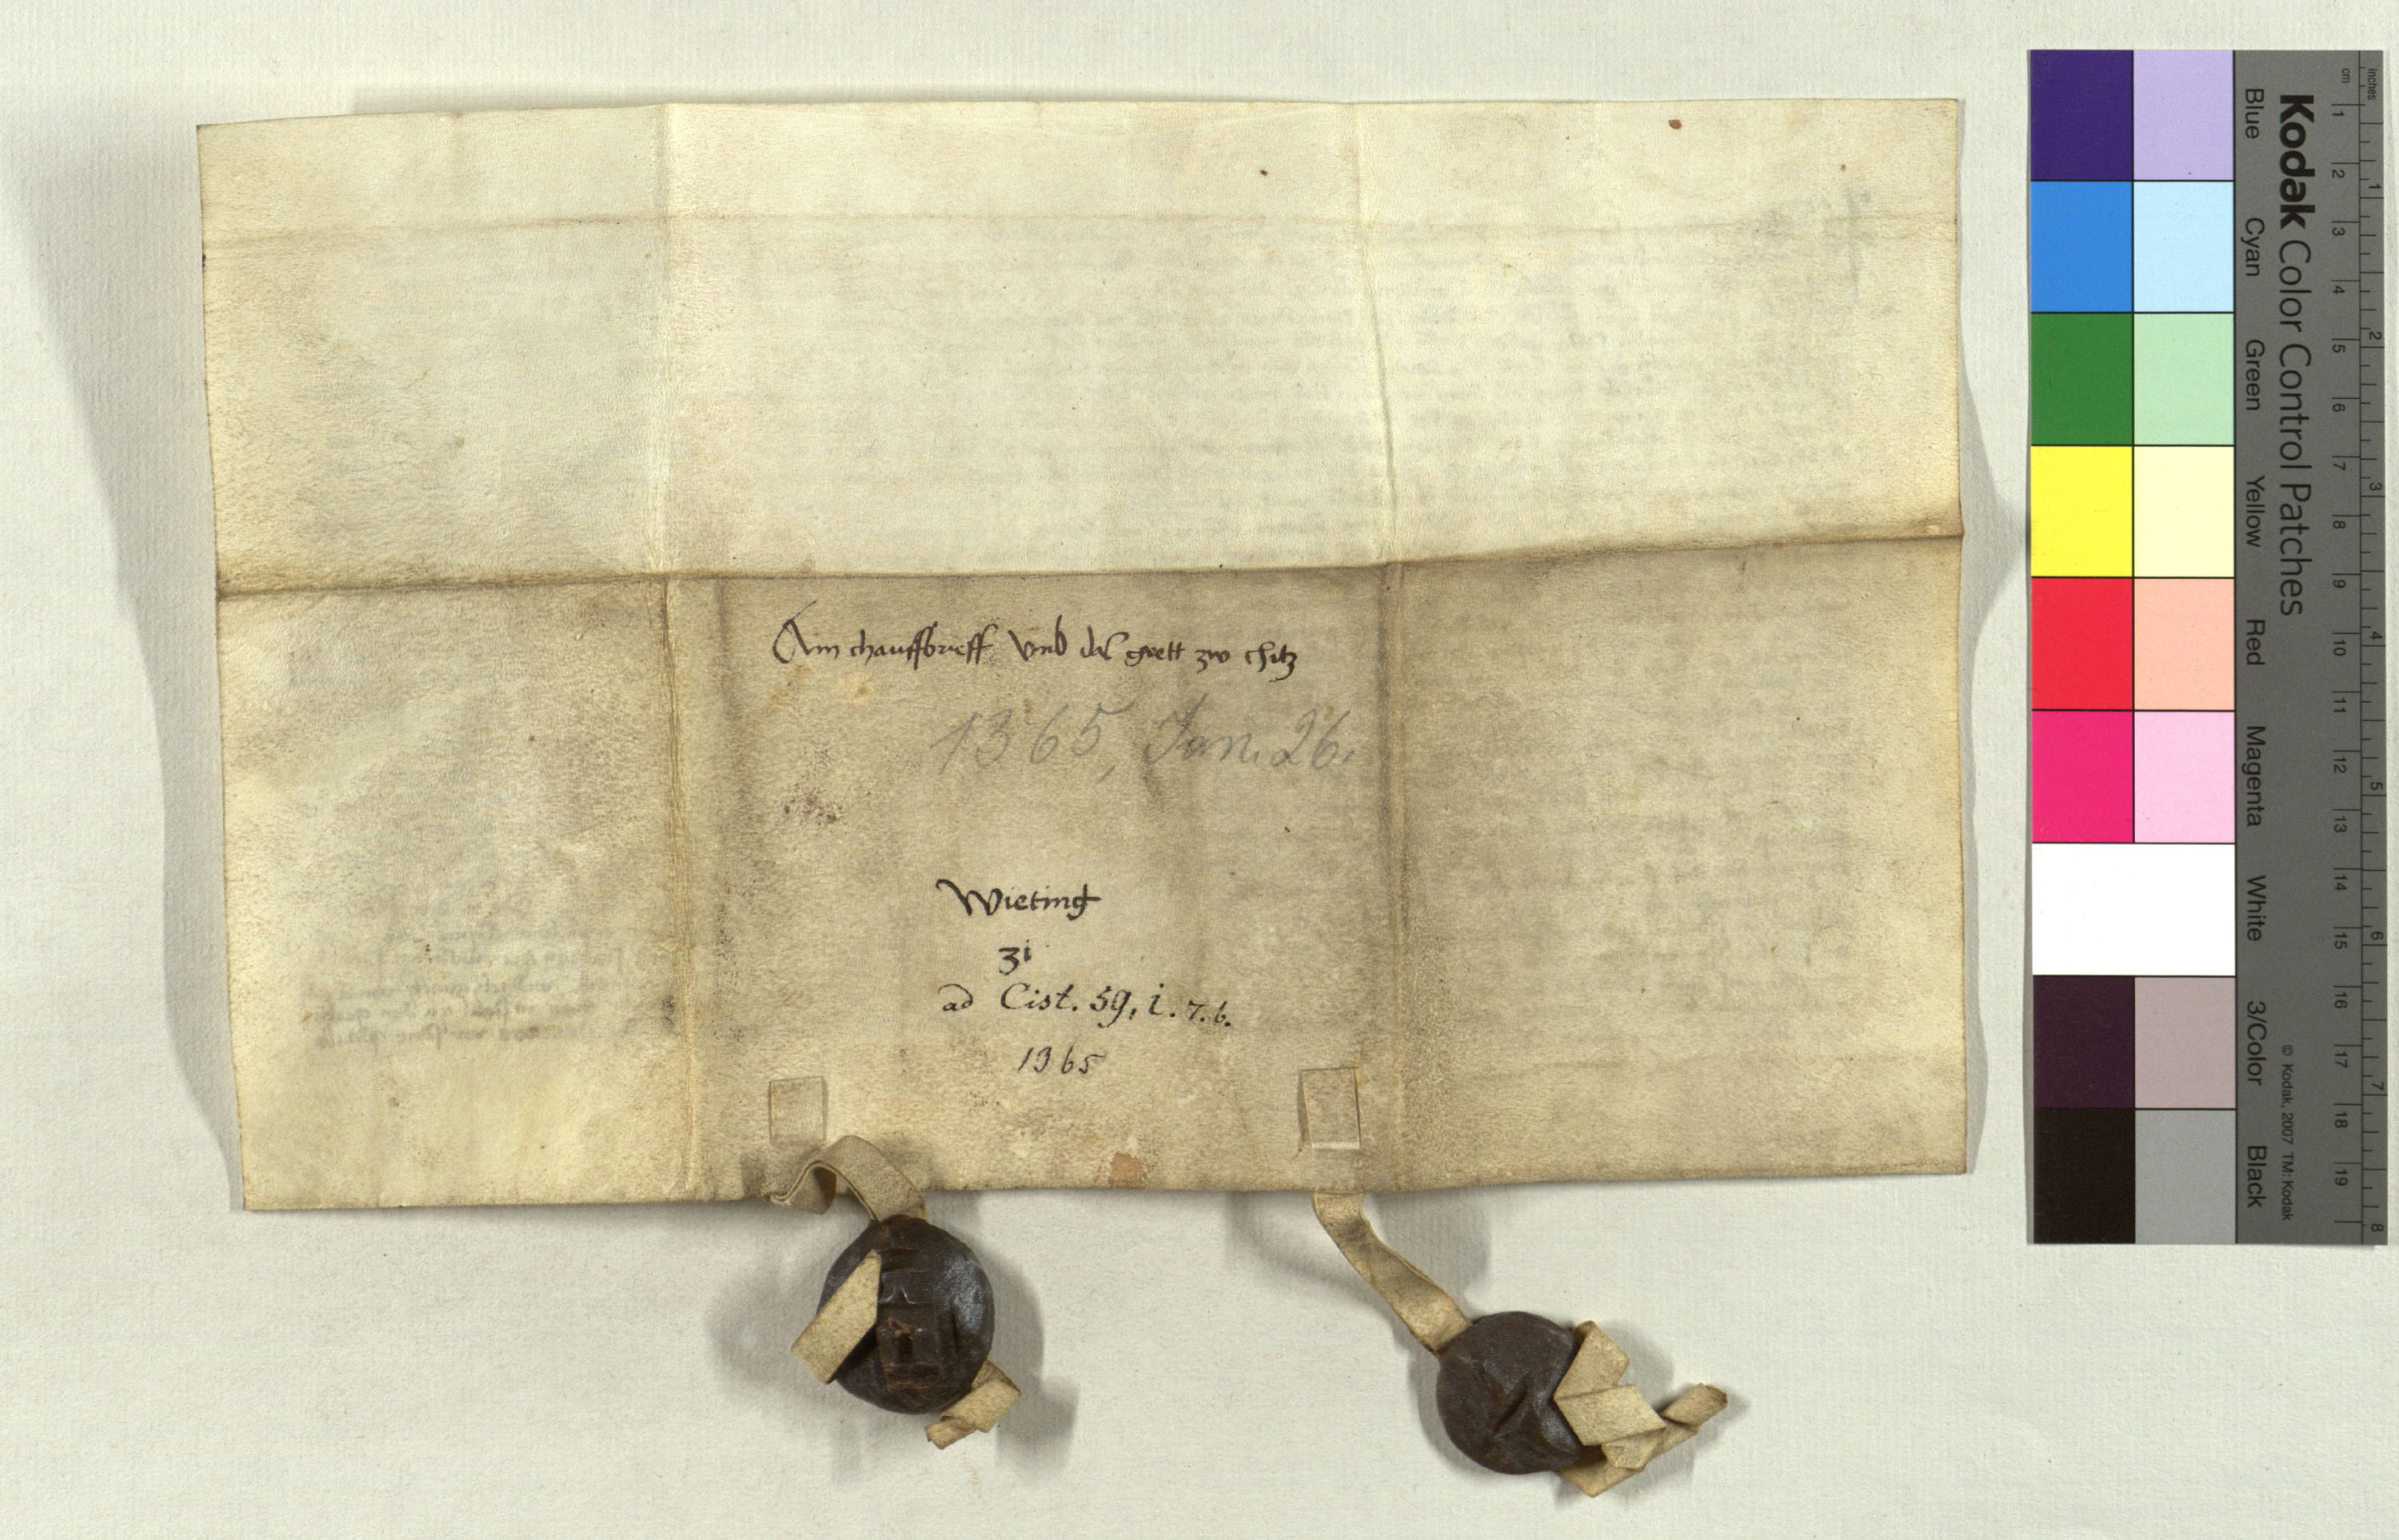 Ain chauffbrieff vmb das guett zw chitz
1365, Jan. 26.
Wieting
3i
ad Cist. 59, i. 7. b.
1365
Kodak Color Control Patches
Blue Cyan Green Yellow Red Magenta White 3/Color Black
© Kodak, 2007 TM: Kodak
cm 1 2 3 4 5 6 7 8 9 10 11 12 13 14 15 16 17 18 19
inches 1 2 3 4 5 6 7 8